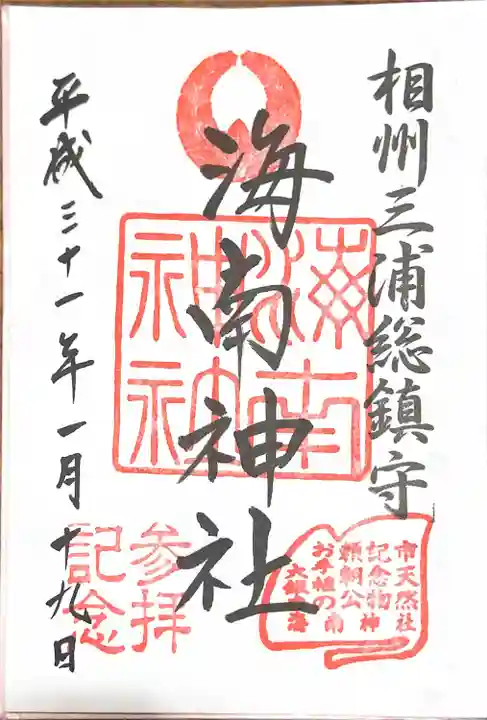 相州三浦総鎮守
海南神社
平成三十一年一月十九日
海南
神社
参拝
記念
市天然
記念物
頼朝公
お手植の
大銀杏
海南神社